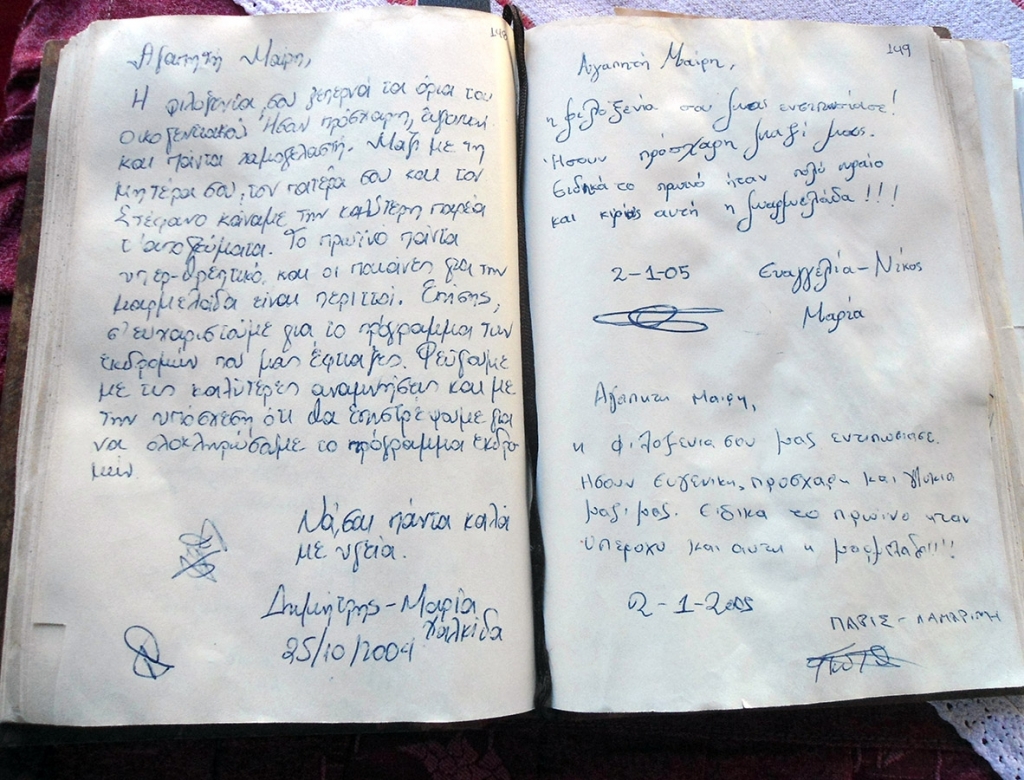 148
Αγαπητή Μαίρη,
Η φιλοξενία σου ξεπερνά τα όρια του
οικογενειακού. Ήσαν πρόσχαρη, ευγενική
και πάντα χαμογελαστή. Μαζί με τη
μητέρα σου, τον πατέρα σου και τον
Στέφανο κάναμε την καλύτερη παρέα
τ' απογεύματα. Το πρωϊνό πάντα
υπερ-θρεπτικό, και οι παιάνες για την
μαρμελάδα είναι περιττοί. Επίσης,
σ' ευχαριστούμε για το πρόγραμμα των
εκδρομών που μας έφτιαξες. Φεύγουμε
με τις καλύτερες αναμνήσεις και με
την υπόσχεση ότι θα επιστρέψουμε για
να ολοκληρώσουμε το πρόγραμμα εκδρο
μών.
Να 'σαι πάντα καλά
με υγεία.
Δημήτρης - Μαρία
Χαλκίδα
25/10/2004
149
Αγαπητή Μαίρη,
η φιλοξενία σου μας εντυπωσίασε!
Ήσουν πρόσχαρη μαζί μας.
Ειδικά το πρωινό ήταν πολύ ωραίο
και κυρίως αυτή η μαρμελάδα!!!
2-1-05 Ευαγγελία - Νίκος
Μαρία
Αγαπητη Μαιρη,
η φιλοξενια σου μας εντυπωσιασε.
Ησουν ευγενικη, προσχαρη και γλυκια
μαζι μας. Ειδικα το πρωινο ηταν
υπεροχο και αυτη η μαρμελαδα!!!
2-1-2005
ΠΑΡΙΣ -